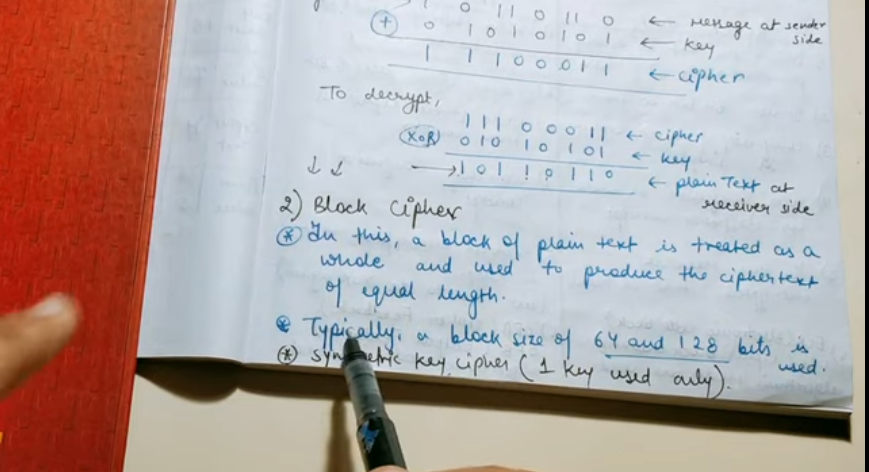 1 0 11 0 11 0 ← message at sender side
(+) 0 1 0 1 0 1 0 1 ← Key
1 1 1 0 0 0 1 1 ← cipher
To decrypt,
1 1 1 0 0 0 1 1 ← cipher
(XOR) 0 1 0 1 0 1 0 1 ← key
→ 1 0 1 1 0 1 1 0 ← plain Text at receiver side
↓ ↓
2) Block Cipher
* In this, a block of plain text is treated as a
whole and used to produce the ciphertext
of equal length.
* Typically, a block size of 64 and 128 bits is used.
* symmetric key cipher (1 key used only).